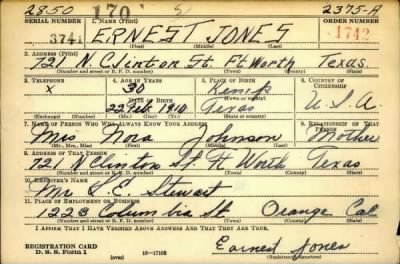 2850 170 S 2375-A
SERIAL NUMBER 1. NAME (Print) ORDER NUMBER
3741 ERNEST JONES 1742
(First) (Middle) (Last)
2. ADDRESS (Print)
721 N. Clinton St. Ft Worth Texas
(Number and street or R. F. D. number) (Town) (County) (State)
3. TELEPHONE 4. AGE IN YEARS 5. PLACE OF BIRTH 6. COUNTRY OF CITIZENSHIP
x 30 Kemp
DATE OF BIRTH Texas U.S.A.
22 1910
(Mo.) (Day) (Yr.) (State or country)
7. NAME OF PERSON WHO WILL ALWAYS KNOW YOUR ADDRESS 8. RELATIONSHIP OF THAT PERSON
Mrs Nora Johnson Mother
(Mr., Mrs., Miss) (First) (Middle) (Last)
9. ADDRESS OF THAT PERSON
721 N Clinton St. Ft Worth Texas
(Number and street or R. F. D. number) (Town) (County) (State)
10. EMPLOYER'S NAME
Mr S.E. Stewart
11. PLACE OF EMPLOYMENT OR BUSINESS
1223 Columbia St Orange Cal
(Number and street or R. F. D. number) (Town) (County) (State)
I AFFIRM THAT I HAVE VERIFIED ABOVE ANSWERS AND THAT THEY ARE TRUE.
REGISTRATION CARD
D. S. S. Form 1 16-17105 Earnest Jones